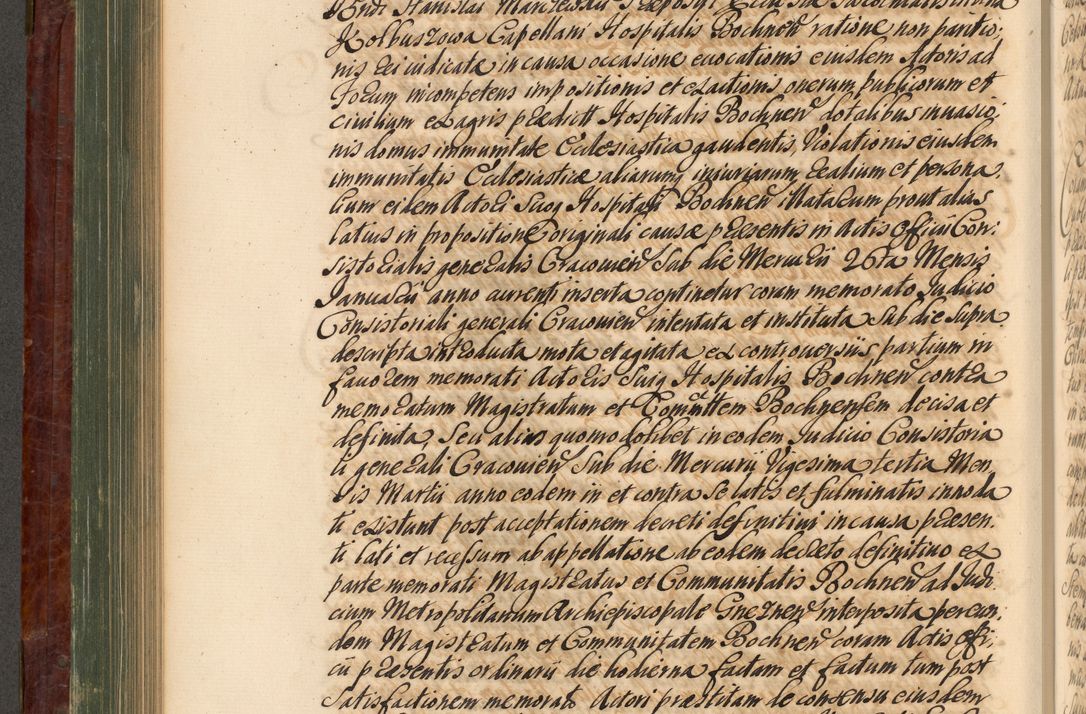 Rndi Stanislai Marczewski Præpositi Ecclesiæ Parochialis in Villa
Kolbuszowa Capellani Hospitalis Bochneñ ratione non paritio,
nis Rei iudicatæ in causa occasione evocationis eiusdem Actoris ad
Forum incompetens impositionis et exactionis onerum publicorum et
civilium ex agris præedicti Hospitalis Bochneñ dotalibus invasio,
nis domus immunitate Ecclesiastica gaudentis, Violationis eiusdem
immunitatis Ecclesiasticæ aliarumq injuriarum Realium et persona,
lium eidem Actori Suoq Hospitali Bochneñ illatarum prout alias
latius in propositione originali causæ præsentis in Actis Officii Con,
sistorialis generalis Cracovieñ Sub die Mercurii 26ta Mensis
Januarii anno currenti inserta continetur coram memorato Judicio
Consistoriali generali Cracovieñ intentata et instituta Sub die supra
descripta introducta mota et agitata ex controversiis partium in
favorem memorati Actoris Suiq Hospitalis Bochneñ contra
memoratum Magistratum et Commttem Bochnensem decisa et
definita, Seu alias quomodolibet in eodem Judicio Consistoria
li generali Cracovieñ Sub die Mercurii Vigesima tertia Men
sis Martii anno eodem in et contra Se latis et fulminatis innoda
ti existunt post acceptationem decreti definitivi in causa præsen,
ti lati et recessum ab appellatione ab eodem decreto definitivo ex
parte memorati Magistratus et Communitatis Bochneñ ad Judi
cium Metropolitanum Archiepiscopale Gneznen interposita per eun,
dem Magistratum et Communitatem Bochneñ coram Actis Offi,
cii præsentis ordinarii die hodierna factam et factum tum post
Satisfactionem memorato Actori præstitam de consensu eiusdem